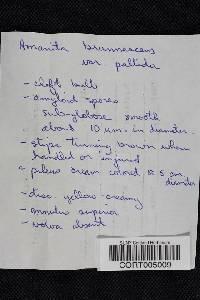 Amanita brunnescens
var pallida
- cleft bulb
- amyloid spores
subglobose smooth
about 10 um. in diameter
- stipe turning brown when
handled or injured
- pileus cream colored 5 cm
diameter
- disc. yellow-creamy
- annulus superior
- volva absent
CORT005009